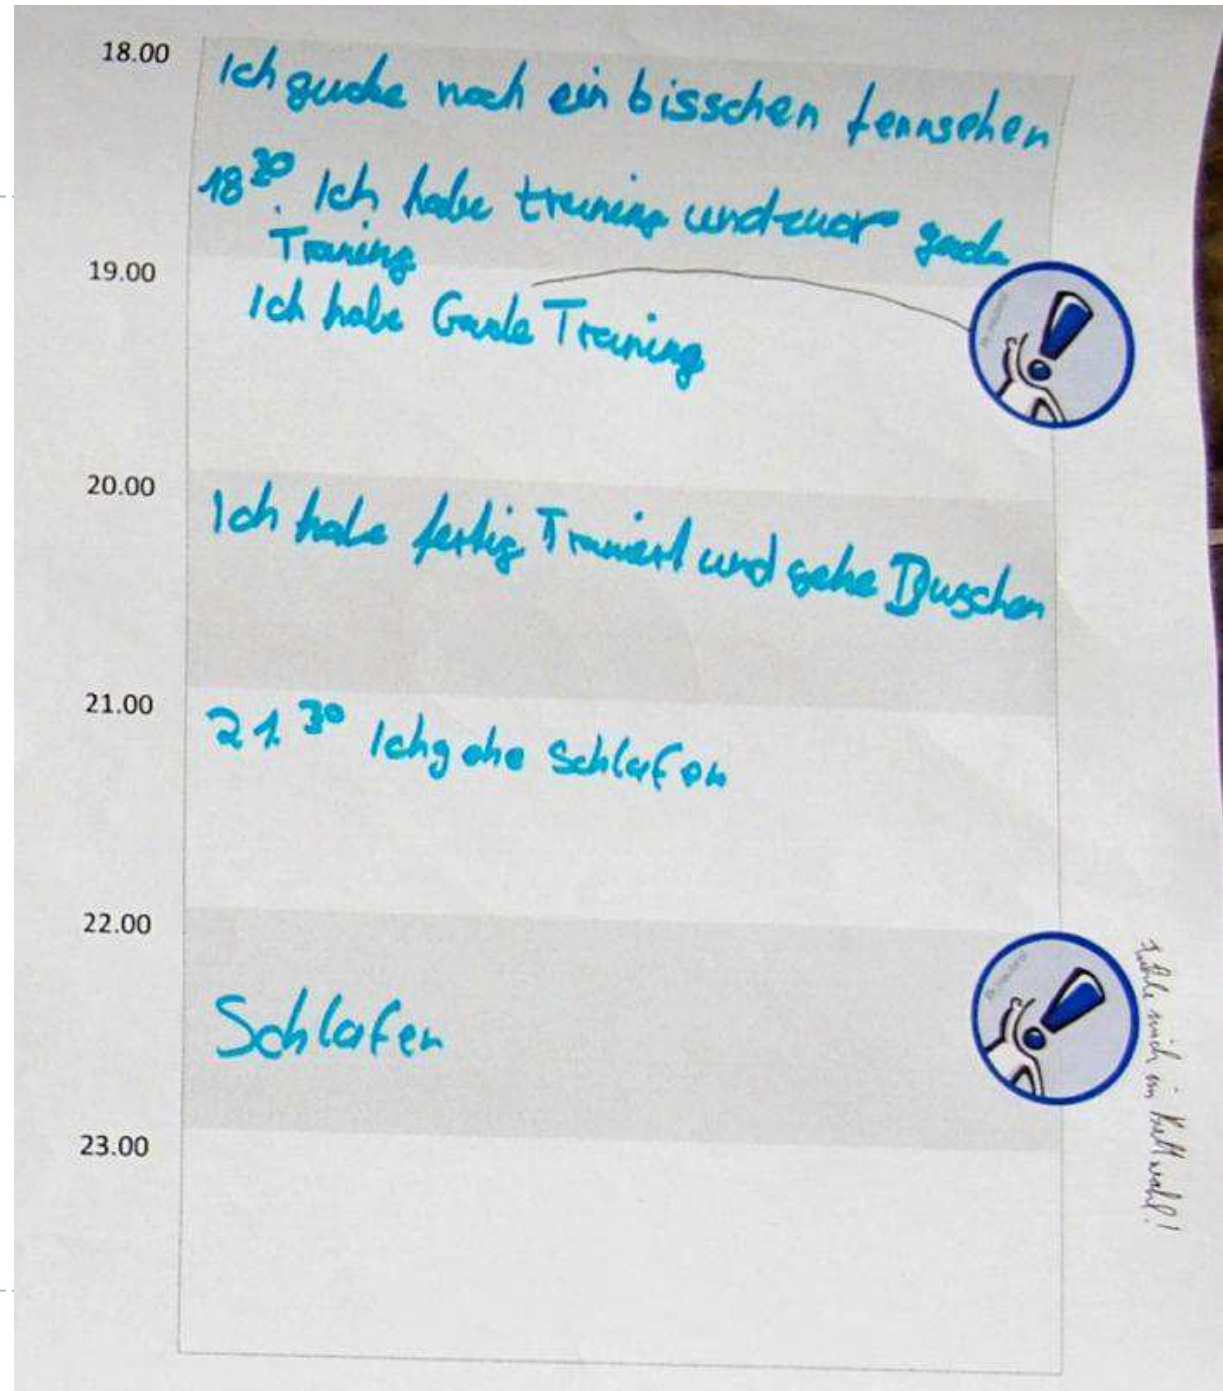 18.00
Ich gucke noch ein bisschen fernnsehen
18 30. Ich habe training und zwar garde
Traning
19.00
Ich habe Garde Training
20.00
Ich habe fertig Trainiert und gehe Duschen
21.00
21.30 Ich gehe Schlafen
22.00
Schlafen
23.00
Fühle mich im Bett wohl!